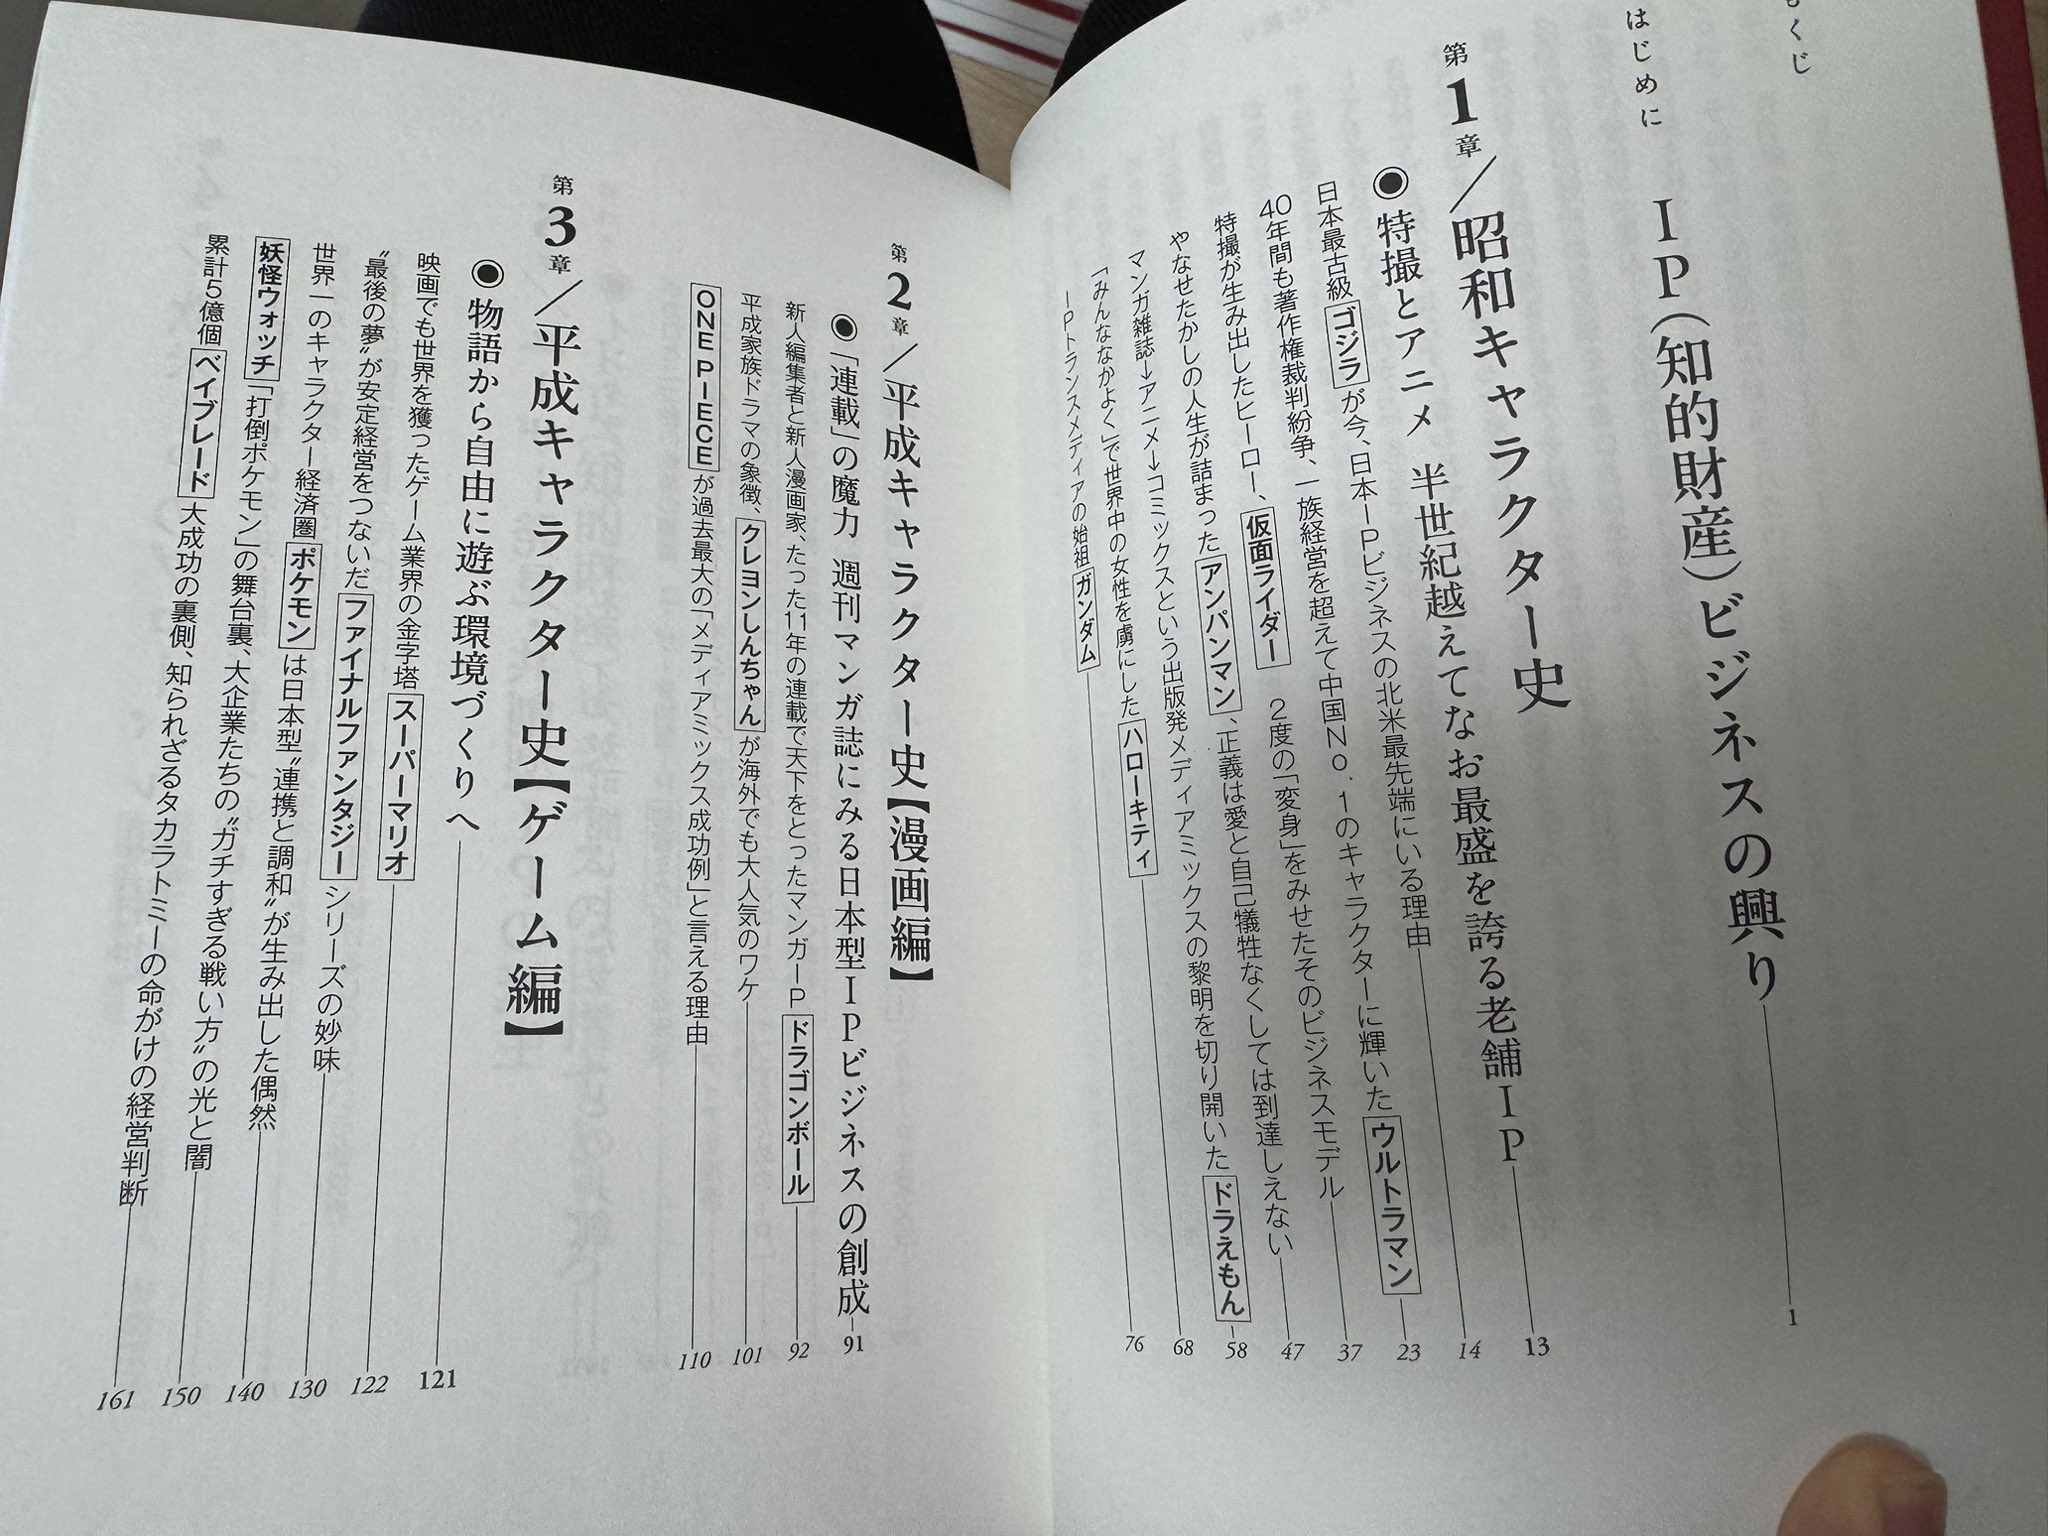 もくじ
はじめに　IP（知的財産）ビジネスの興り 1
第1章／昭和キャラクター史
◉特撮とアニメ　半世紀越えてなお最盛を誇る老舗IP 13
日本最古級ゴジラが今、日本IPビジネスの北米最先端にいる理由 14
40年間も著作権裁判紛争、一族経営を超えて中国No.1のキャラクターに輝いたウルトラマン 23
特撮が生み出したヒーロー、仮面ライダー　2度の「変身」をみせたそのビジネスモデル 37
やなせたかしの人生が詰まったアンパンマン、正義は愛と自己犠牲なくしては到達しえない 47
マンガ雑誌→アニメ→コミックスという出版発メディアミックスの黎明を切り開いたドラえもん 58
「みんななかよく」で世界中の女性を虜にしたハローキティ 68
IPトランスメディアの始祖ガンダム 76
第2章／平成キャラクター史【漫画編】
◉「連載」の魔力　週刊マンガ誌にみる日本型IPビジネスの創成 91
新人編集者と新人漫画家、たった11年の連載で天下をとったマンガIPドラゴンボール 92
平成家族ドラマの象徴、クレヨンしんちゃんが海外でも大人気のワケ 101
ONE PIECEが過去最大の「メディアミックス成功例」と言える理由 110
第3章／平成キャラクター史【ゲーム編】
◉物語から自由に遊ぶ環境づくりへ 121
映画でも世界を獲ったゲーム業界の金字塔スーパーマリオ 122
〝最後の夢〟が安定経営をつないだファイナルファンタジーシリーズの妙味 130
世界一のキャラクター経済圏ポケモンは日本型〝連携と調和〟が生み出した偶然 140
妖怪ウォッチ「打倒ポケモン」の舞台裏、大企業たちの〝ガチすぎる戦い方〟の光と闇 150
累計5億個ベイブレード大成功の裏側、知られざるタカラトミーの命がけの経営判断 161